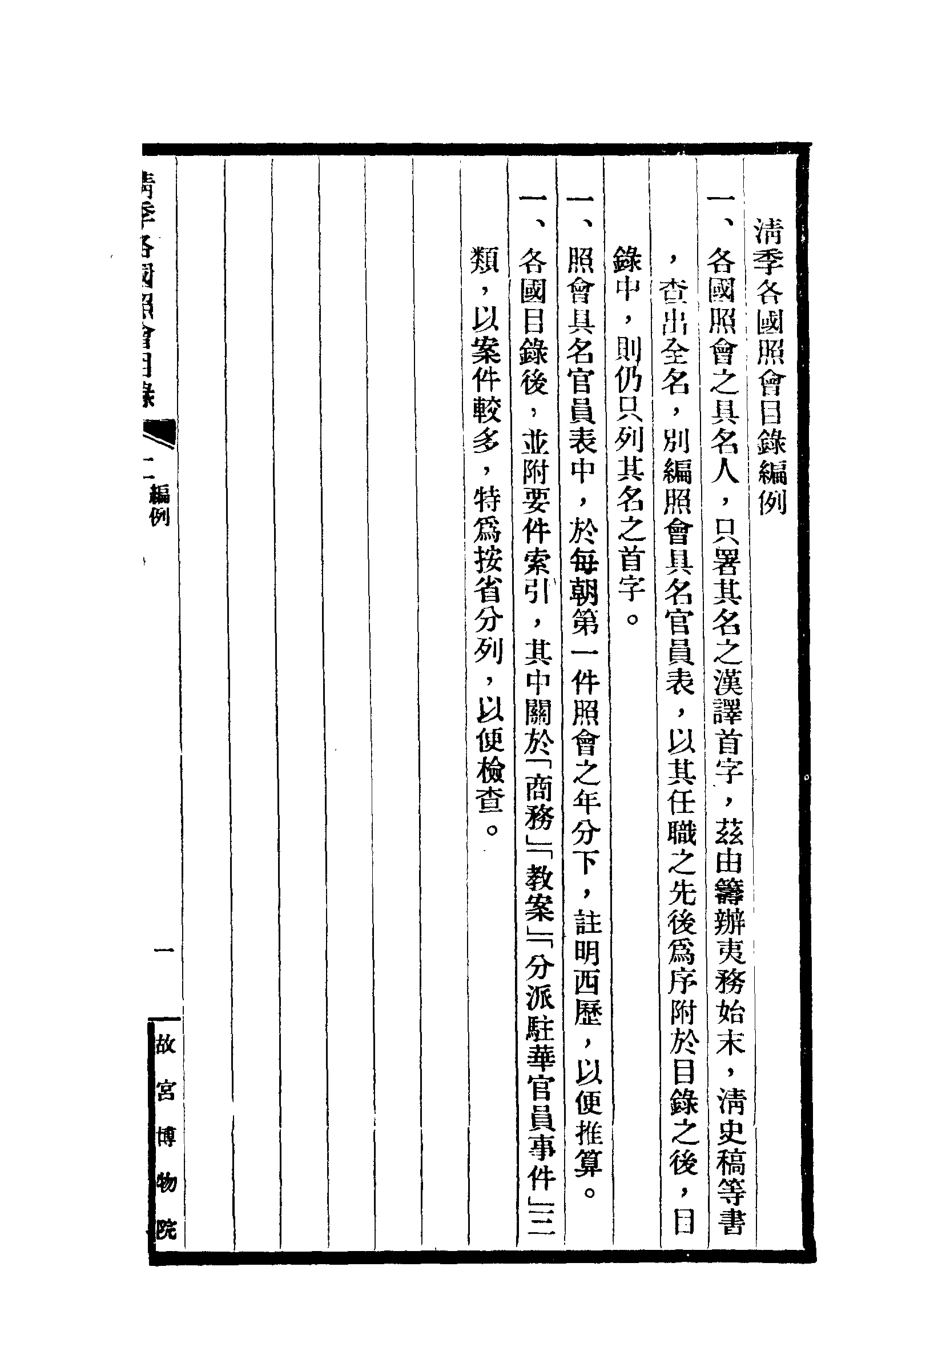 清季各國照會目錄編例
一、各國照會之具名人，只署其名之漢譯首字，茲由籌辦夷務始末，清史稿等書
，查出全名，別編照會具名官員表，以其任職之先後爲序附於目錄之後，目
錄中，則仍只列其名之首字。
一、照會具名官員表中，於每朝第一件照會之年分下，註明西歷，以便推算。
一、各國目錄後，並附要件索引，其中關於「商務」「教案」「分派駐華官員事件」三
類，以案件較多，特爲按省分列，以便檢查。
清季各國照會目錄
二
編例
一
故宮博物院